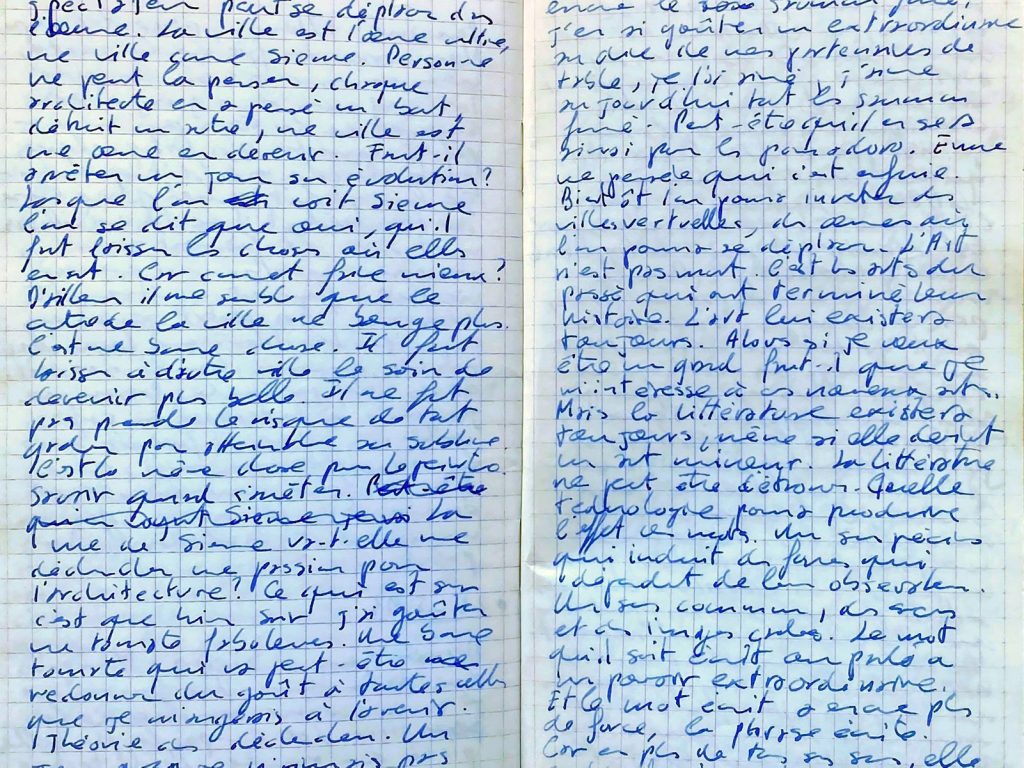 spectateur peut se déplacer dans
l'œuvre. La ville est l'œuvre ultime,
une ville comme Sienne. Personne
ne peut la penser, chaque
architecte en a pensé un bout,
détruit un autre, une ville est
une œuvre en devenir. Faut-il
arrêter un jour son évolution?
Lorsque l'on voit Sienne
l'on se dit que oui, qu'il
faut laisser les choses où elles
en sont. Car comment faire mieux?
D'ailleurs il me semble que le
centre de la ville ne bouge plus.
C'est une bonne chose. Il faut
laisser à d'autre ville le soin de
devenir plus belle. Il ne faut
pas prendre le risque de tout
gâcher pour atteindre au sublime.
C'est la même chose pour la peinture
savoir quand s'arrêter. Peut-être
qu'en voyant Sienne La
vue de Sienne va-t-elle me
déclencher une passion pour
l'architecture? Ce qui est sûr
c'est que hier soir j'ai goûté
une tomate fabuleuse. Une bonne
tomate qui va peut-être me
redonner du goût à toutes celles
que je mangerais à l'avenir.
Théorie du déclencheur. Un
pas
encore le saumon fumé.
j'en ai goûté un extraordinaire
à une de nos
table, je l'ai aimé, j'aime
aujourd'hui tout les saumon
fumé. Peut-être qu'il en sera
ainsi pour les pomodoro. Encore
une pensée qui s'est enfuie.
Bientôt l'on pourra inventer des
villes virtuelles, des œuvres où
l'on pourra se déplacer. L'Art
n'est pas mort. C'est les arts du
passé qui ont terminé leur
histoire. L'art lui existera
toujours. Alors si je veux
être un grand faut-il que je
m'intéresse à ces nouveaux arts.
Mais la littérature existera
toujours, même si elle devient
un art mineur. La littérature
ne peut être détrôner. Quelle
technologie pourra produire
l'effet des mots. Un sens précis
qui induit des forces qui
dépendent de leur observateur.
Un sens commun, des sens
et des images cachés. Le mot
qu'il soit écrit ou parlé a
un pouvoir extraordinaire.
Et le mot écrit a encore plus
de force, la phrase écrite.
Car en plus de tous ses sens, elle